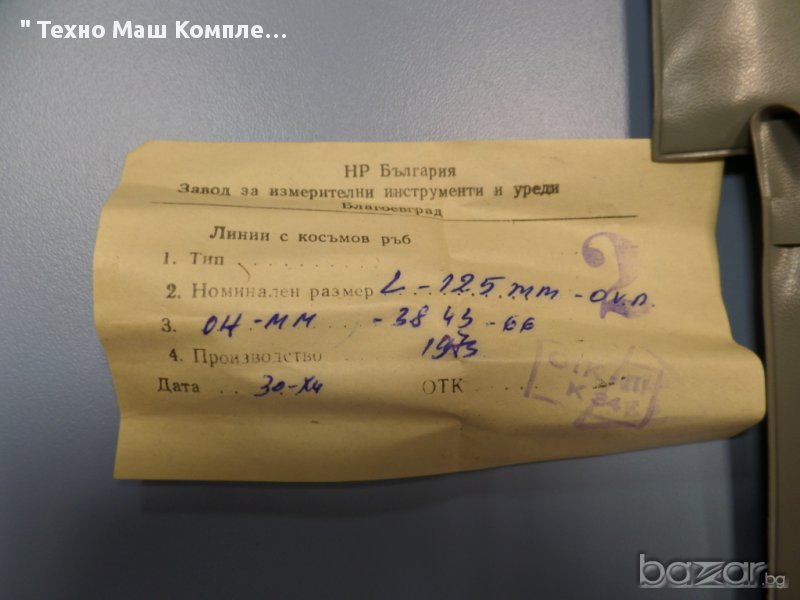 " Техно Маш Компле...
НР България
Завод за измерителни инструменти и уреди
Благоевград
Линии с косъмов ръб
1. Тип . . . . . . . . . .
2. Номинален размер L - 125 mm - 0 кл.
3. ОН-ММ - 3843-66
4. Производство 1973
Дата . . 30-XII ОТК . . . .
2
ОТК
bazar.bg